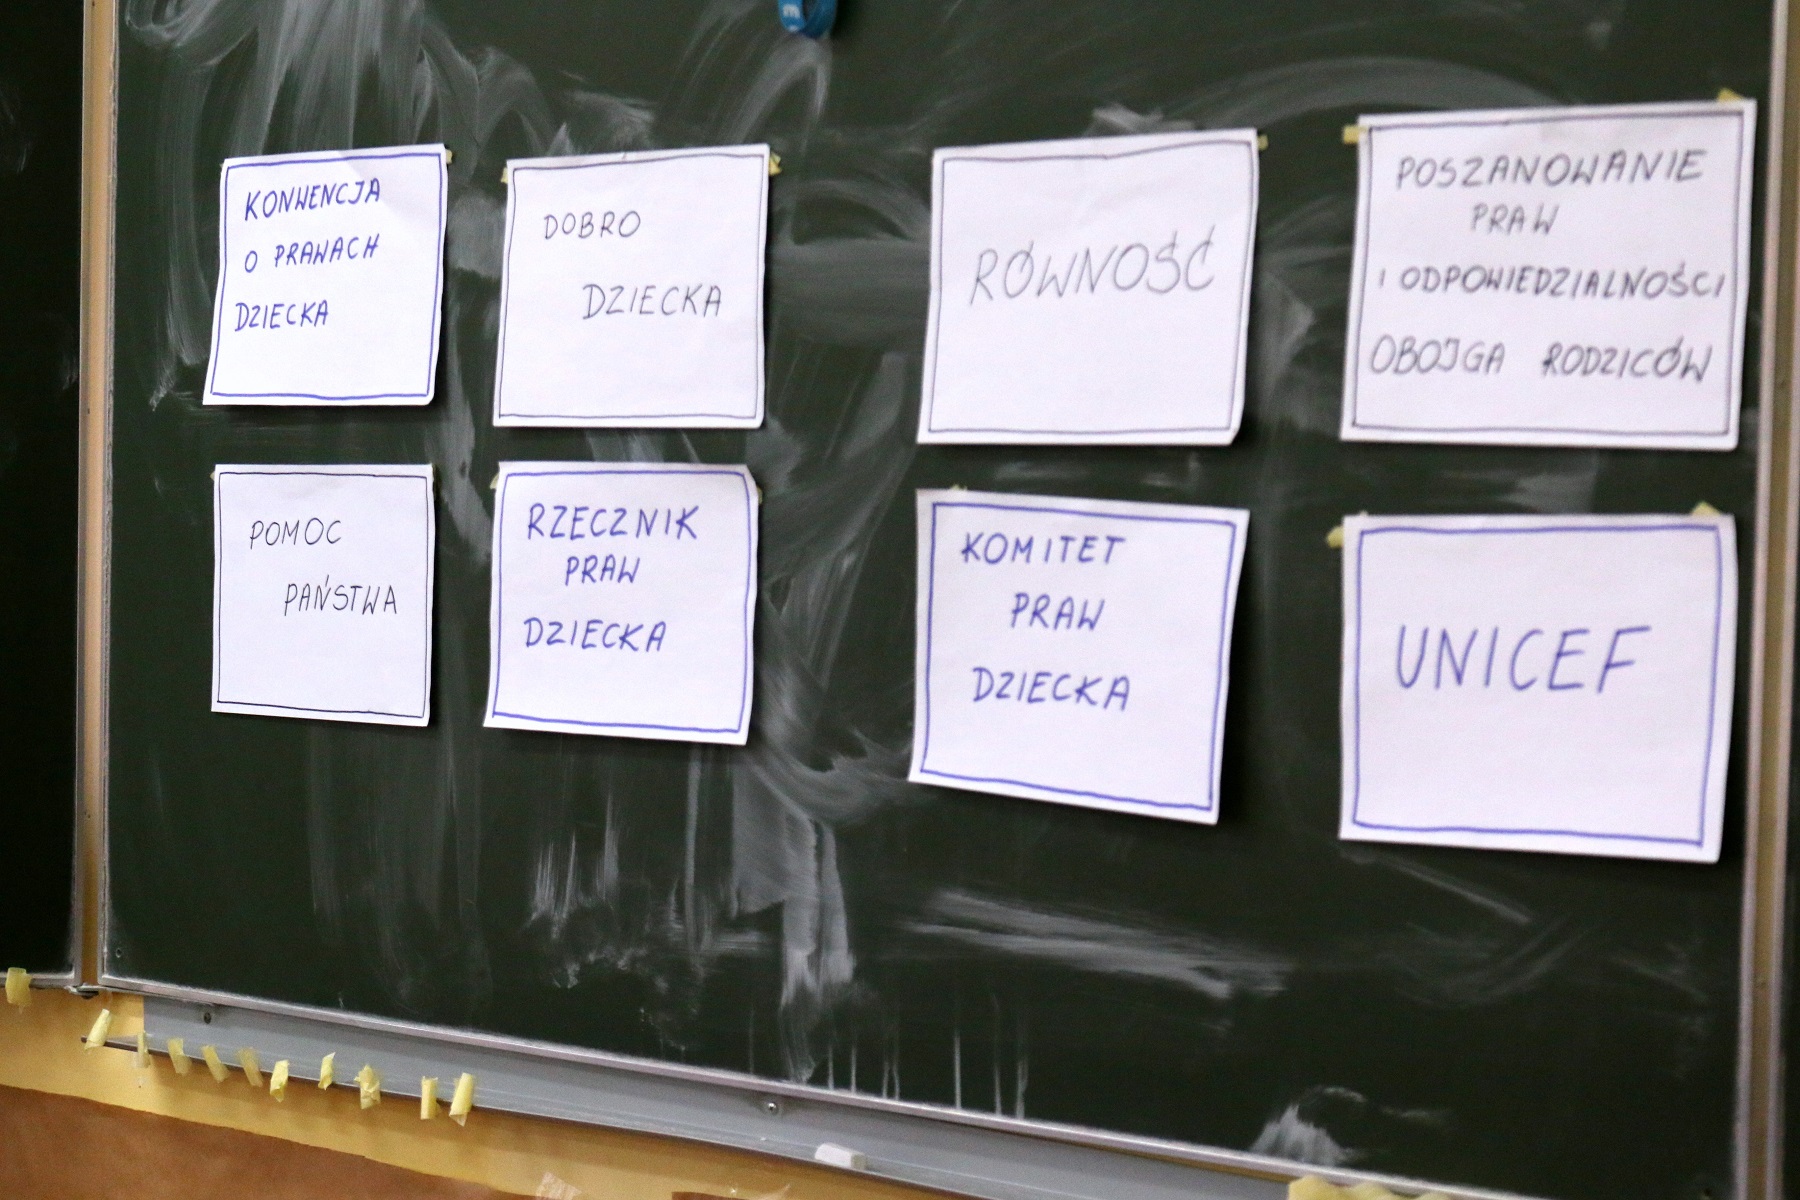 KONWENCJA
O PRAWACH
DZIECKA
DOBRO
DZIECKA
RÓWNOŚĆ
POSZANOWANIE
PRAW
I ODPOWIEDZIALNOŚCI
OBOJGA RODZICÓW
POMOC
PAŃSTWA
RZECZNIK
PRAW
DZIECKA
KOMITET
PRAW
DZIECKA
UNICEF